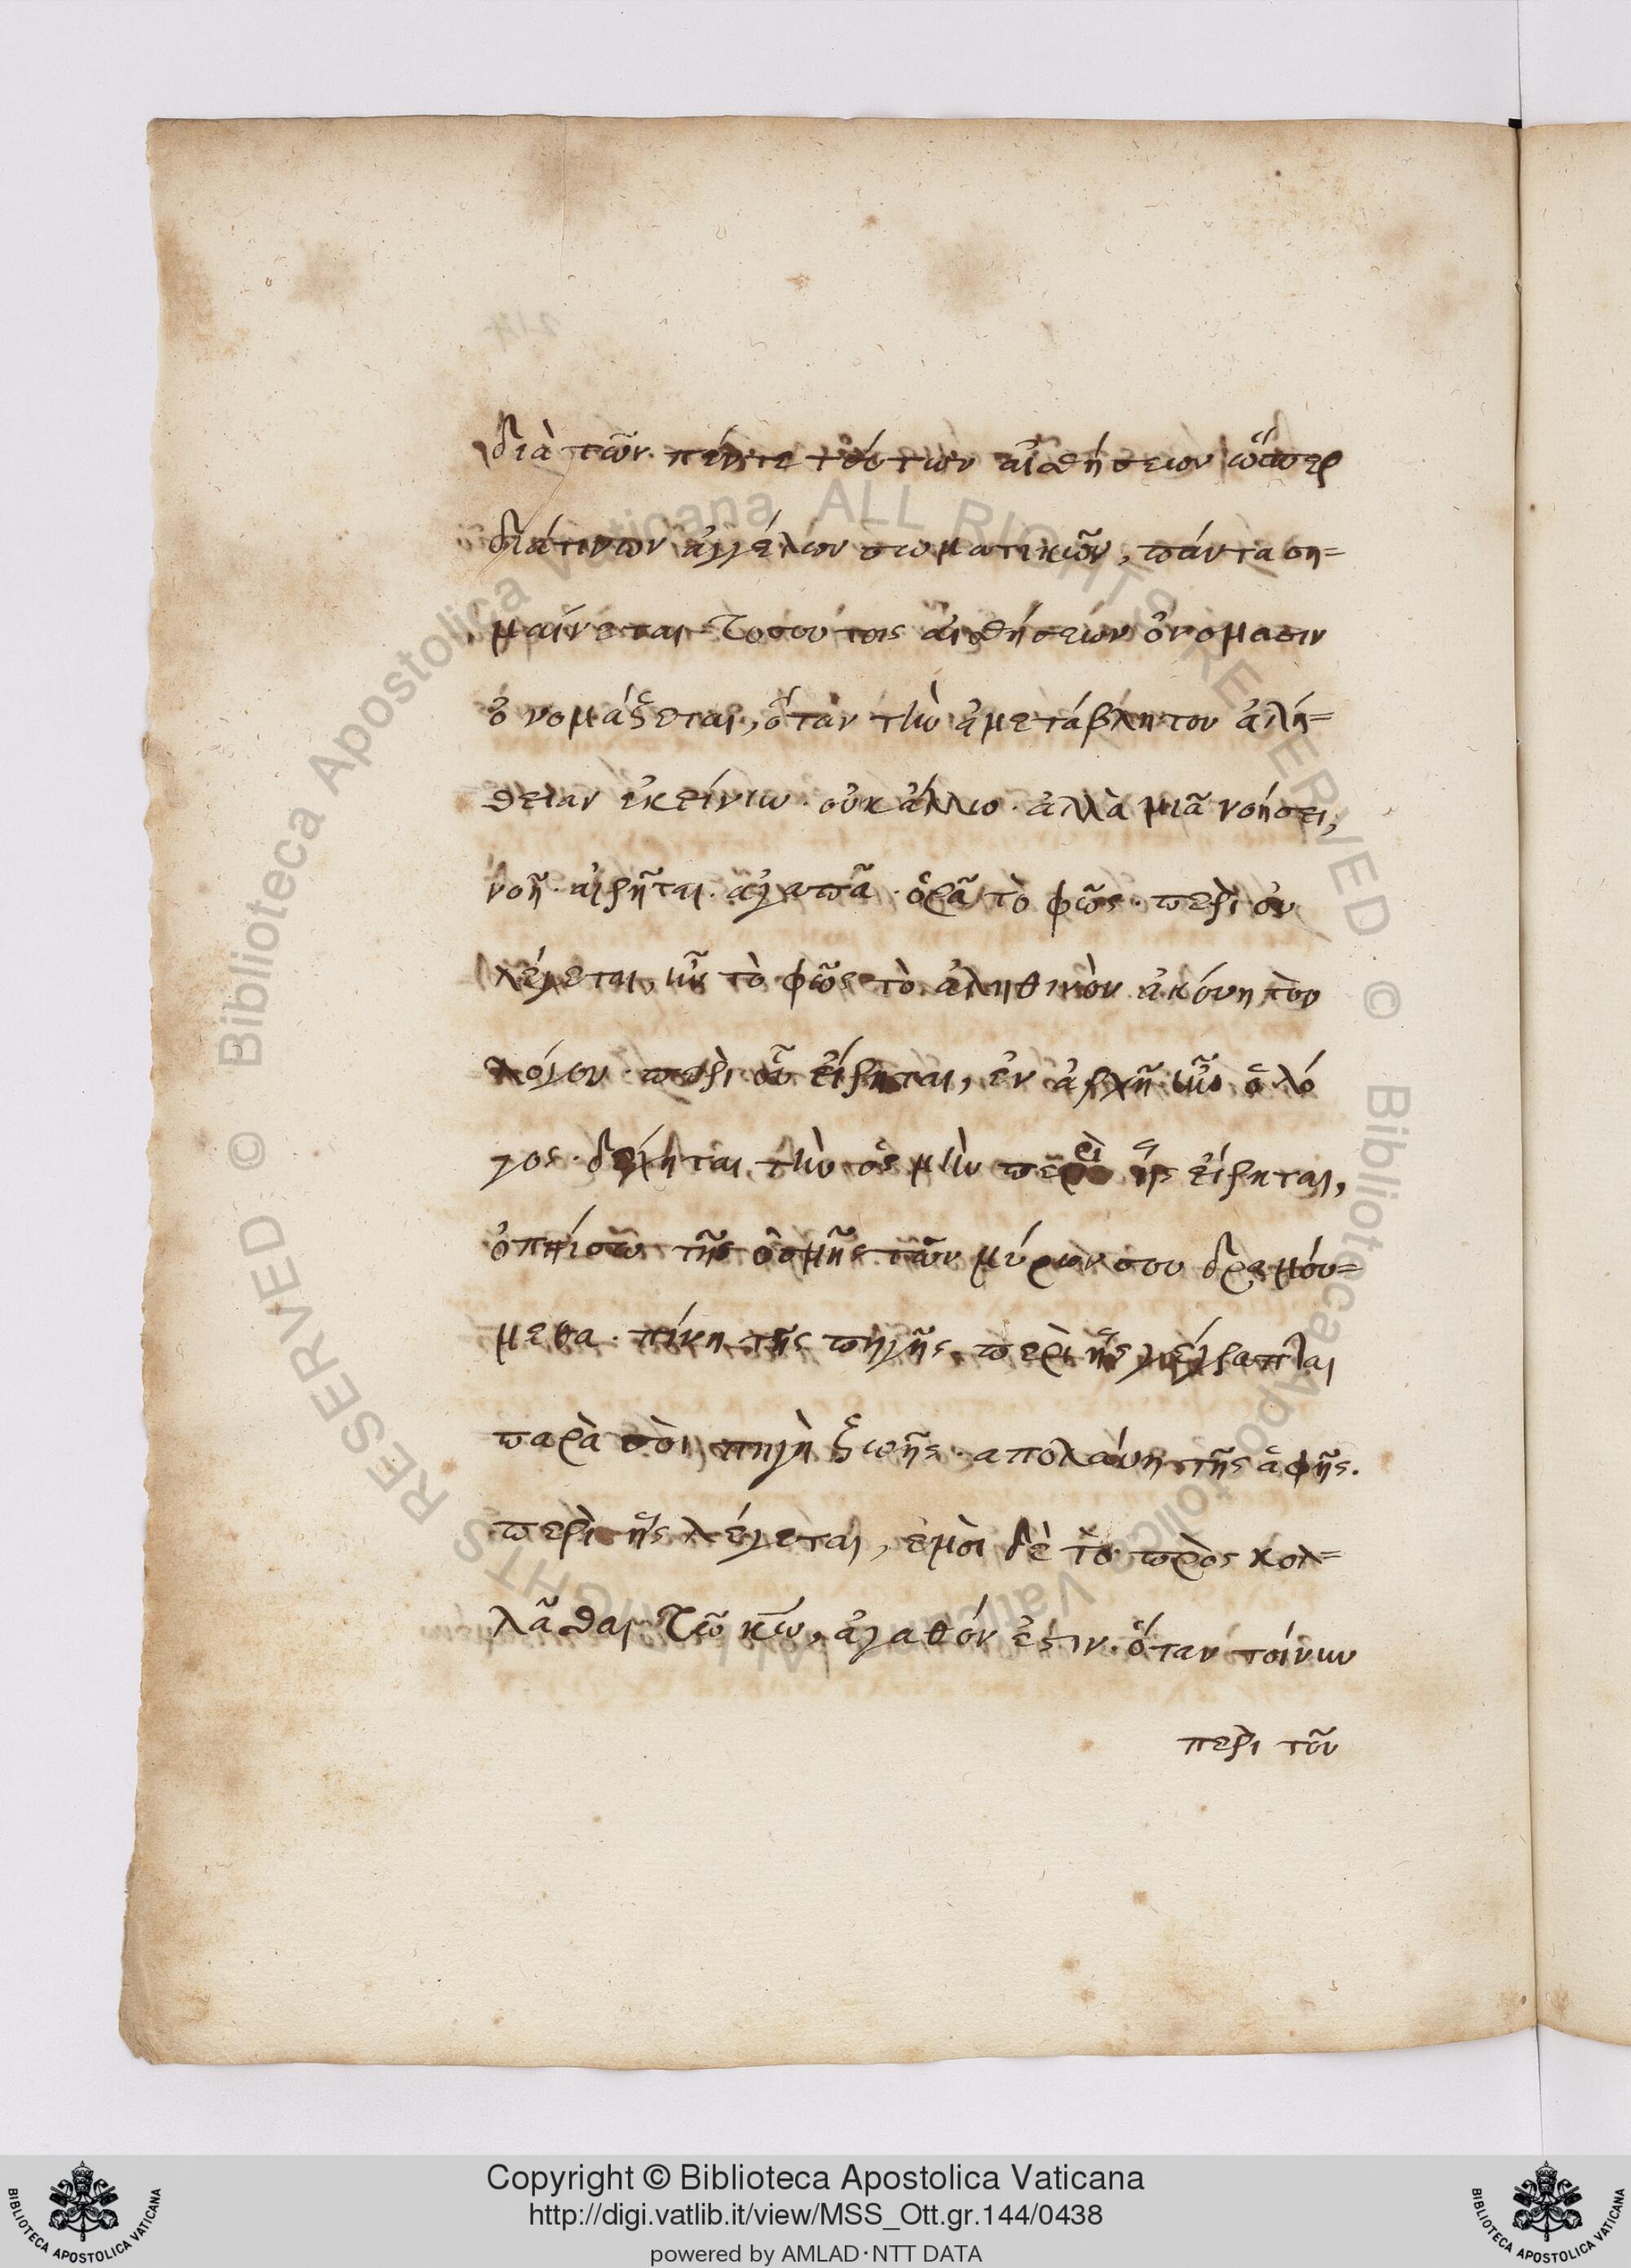 διὰ τῶν πέντε τούτων αἰσθήσεων ὥσπερ
διάτινων ἀγγέλων σωματικῶν, πάντα ση=
μαίνεται τοσούτοις αἰσθήσεων ὀνόμασιν
ὀνομάζεται, ὅταν τὴν ἀμετάβλητον ἀλή=
θειαν ἐκείνην. οὐκ ἄλλω. ἀλλὰ μιᾶ νοήσει,
νοῆ. αἱρῆται. ἀγαπᾶ. ὁρᾶ τὸ φῶς. περὶ οὗ
λέγεται, ἦν τὸ φῶς τὸ ἀληθινὸν ἀκούη τὸν
λόγον. περὶ οὗ εἴρηται, ἐν ἀρχῆ ἦν ὁ λό
γος. δέχηται τὴν ὀσμὴν περὶ ἧς εἴρηται,
ὀπίσω τῆς ὀσμῆς τῶν μύρων σου δραμού=
μεθα. πίνη τῆς πηγῆς, περὶ ἧς γέγραπται
παρὰ σοὶ πηγὴ ζωῆς. απολαύη τῆς ἁφῆς.
περὶ ἧς λέγεται, ἐμοὶ δὲ τὸ προς κολ=
λᾶσθαι τῶ κω, ἀγαθόν ἐστιν. ὅταν τοίνυν
περὶ τοῦ
Copyright © Biblioteca Apostolica Vaticana
http://digi.vatlib.it/view/MSS_Ott.gr.144/0438
powered by AMLAD·NTT DATA
BIBLIOTECA APOSTOLICA VATICANA
BIBLIOTECA APOSTOLICA VATICANA